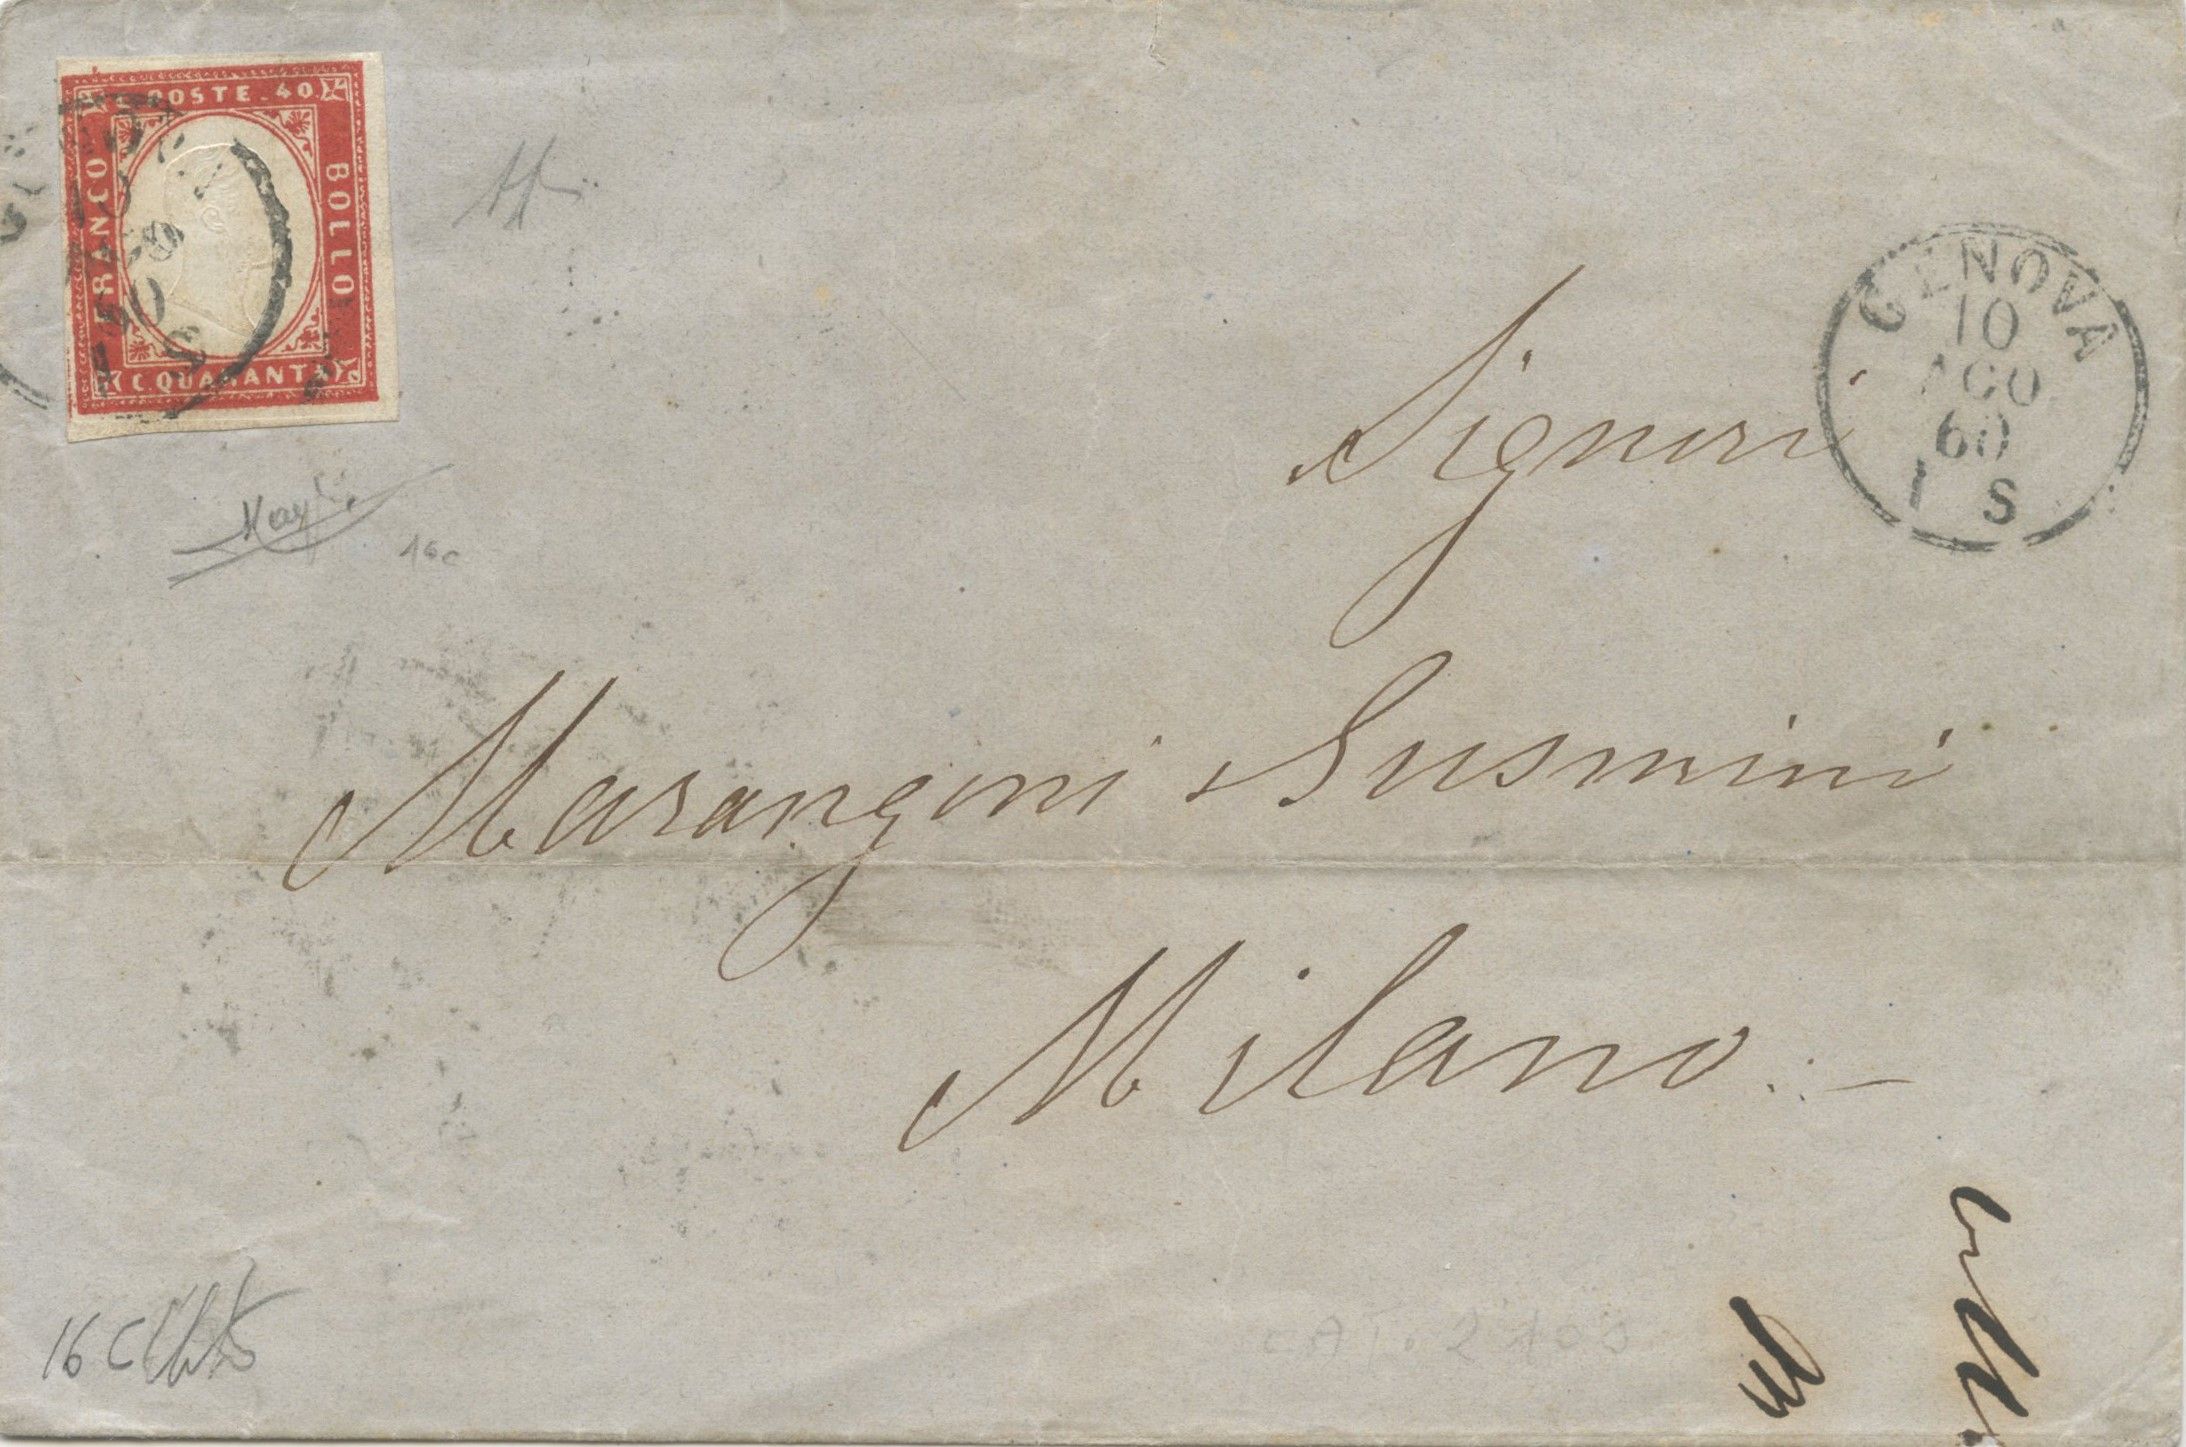 C. POSTE. 40
FRANCO
BOLLO
C. QUARANTA
GENOVA
10
AGO
60
S
Signori
Marangoni Susmini
Milano.
16c
16 C
CAT. 2100